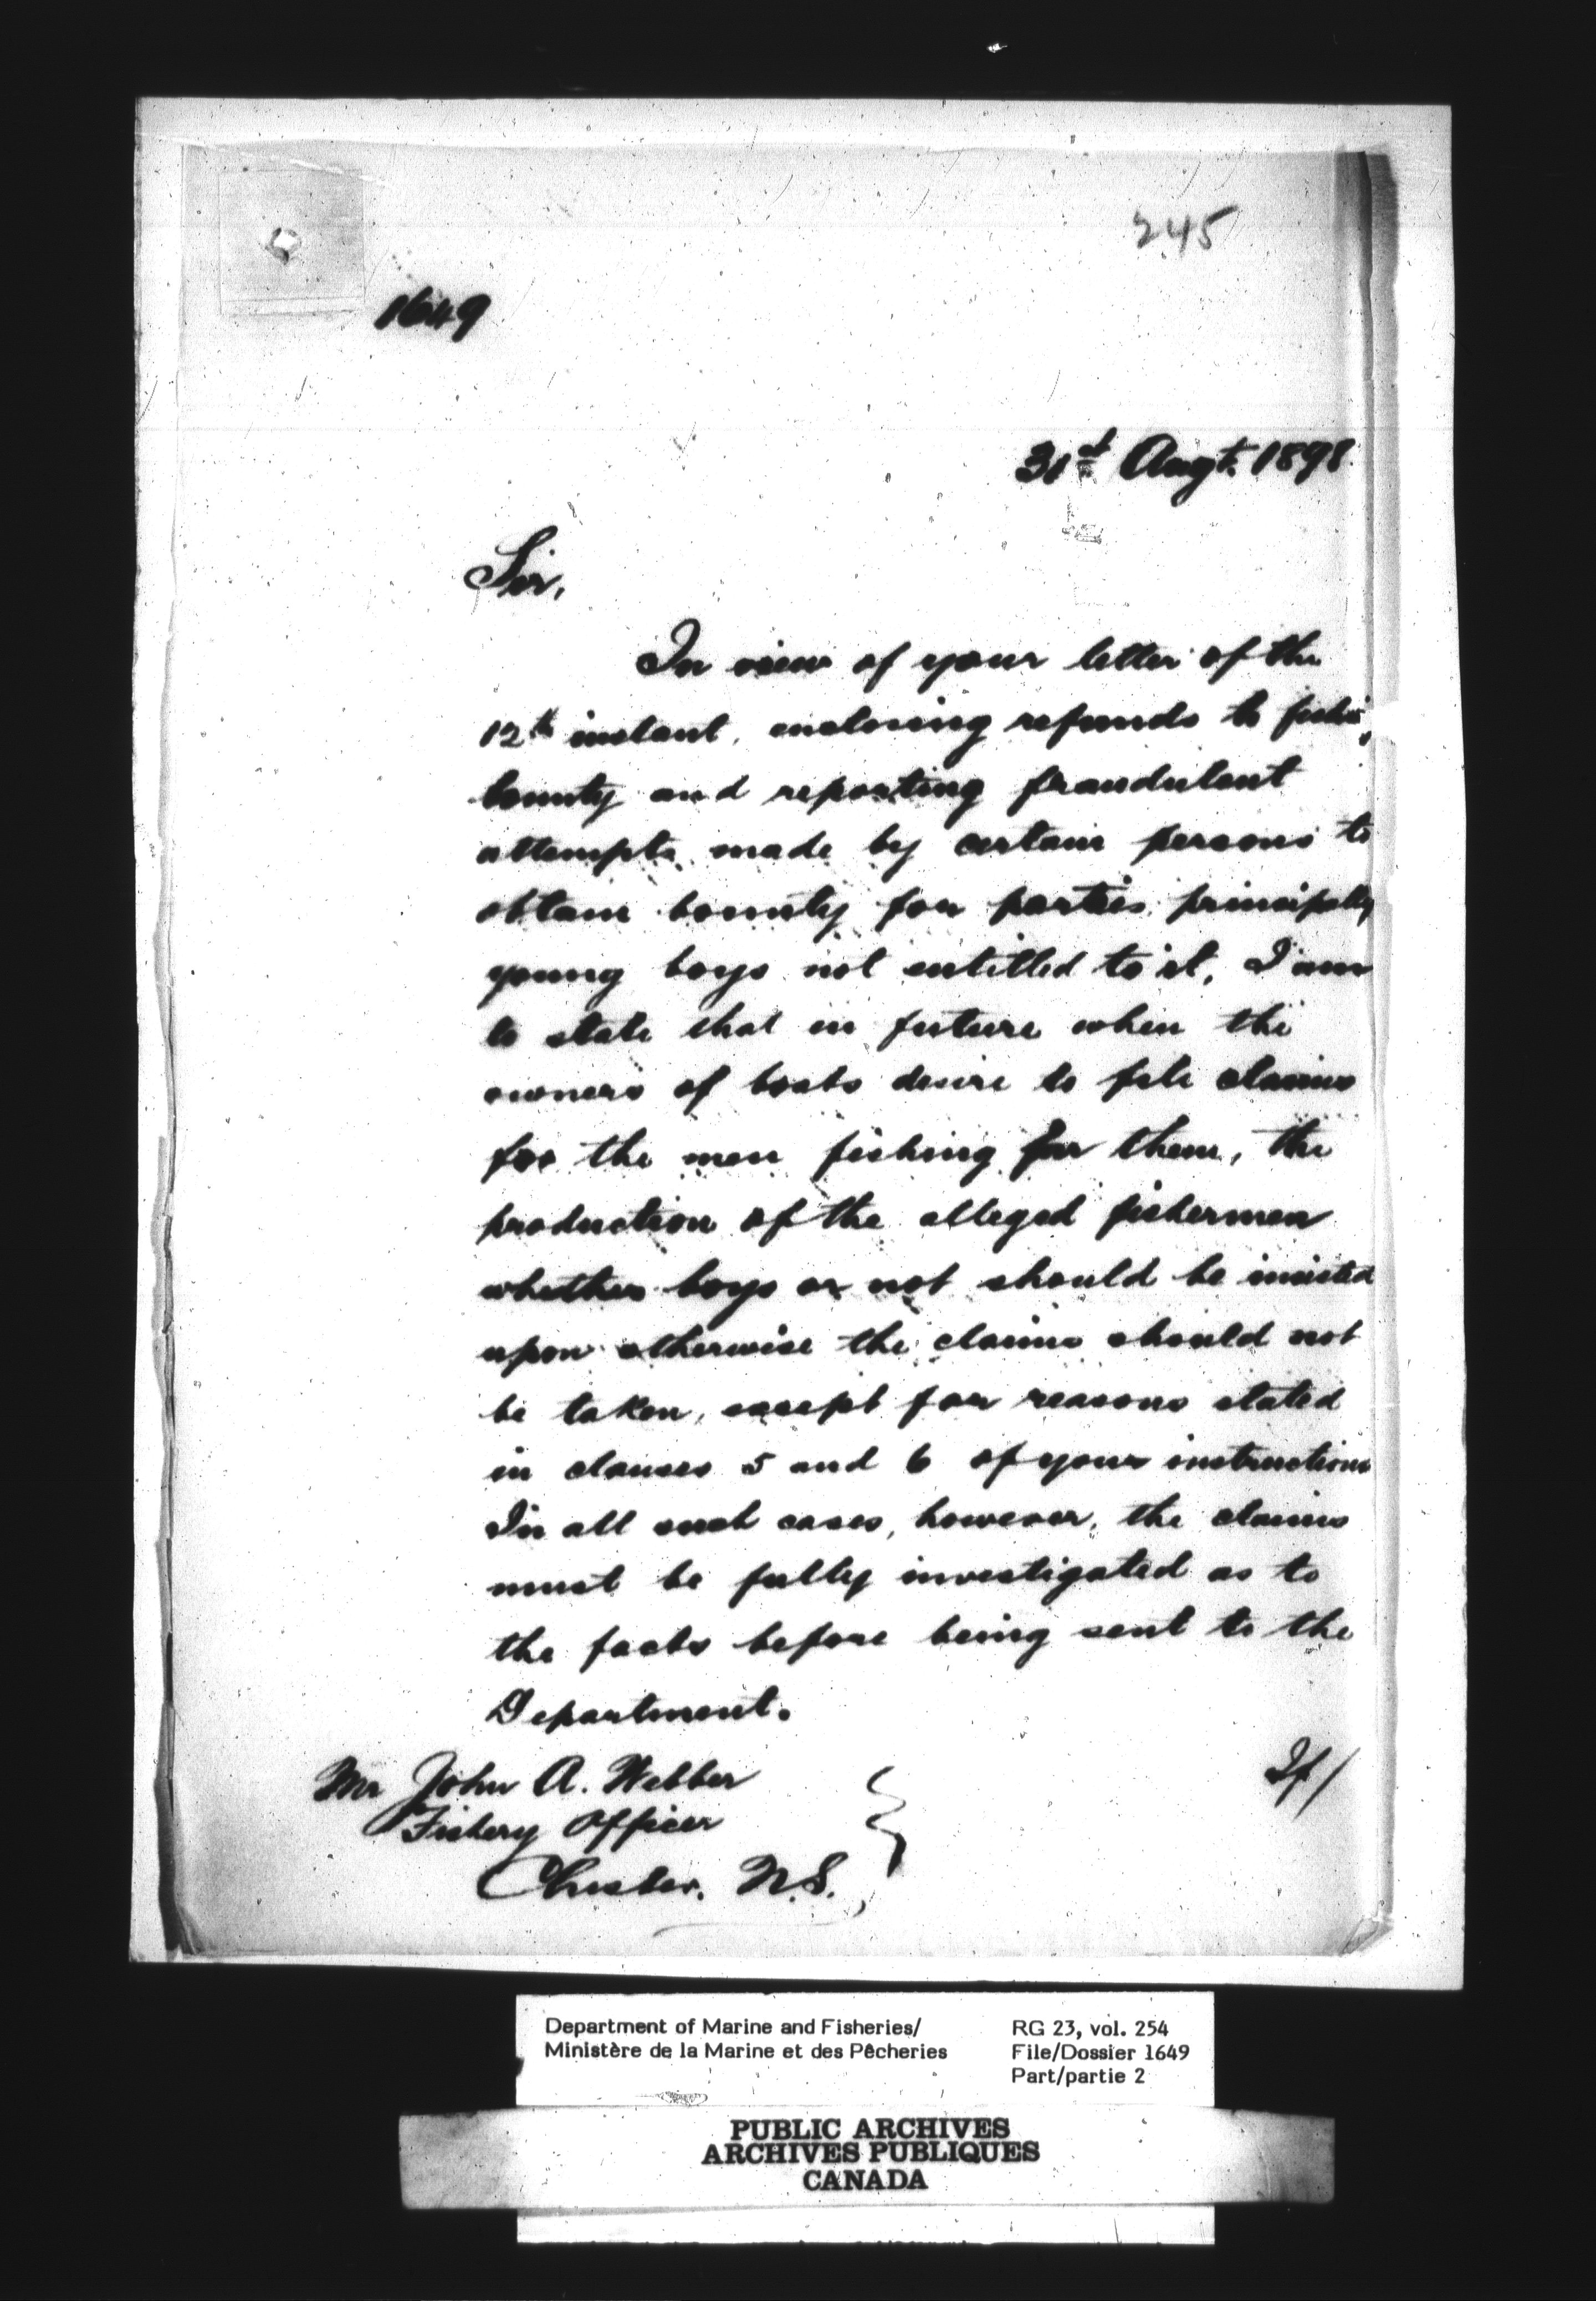 245
1649
31st Augt. 1898
Sir,
In view of your letter of the
12th instant, enclosing refunds to fishing
bounty and reporting fraudulent
attempts made by certain persons to
obtain bounty for parties principally
young boys not entitled to it, I am
to state that in future when the
owners of boats desire to file claims
for the men fishing for them, the
production of the alleged fishermen
whether boys or not should be insisted
upon otherwise the claims should not
be taken, except for reasons stated
in clauses 5 and 6 of your instructions
In all such cases, however, the claims
must be fully investigated as to
the facts before being sent to the
Department.
If/
Mr John A. Webber
Fishery Officer
Chester. N.S.
Department of Marine and Fisheries/
Ministère de la Marine et des Pêcheries
RG 23, vol. 254
File/Dossier 1649
Part/partie 2
PUBLIC ARCHIVES
ARCHIVES PUBLIQUES
CANADA